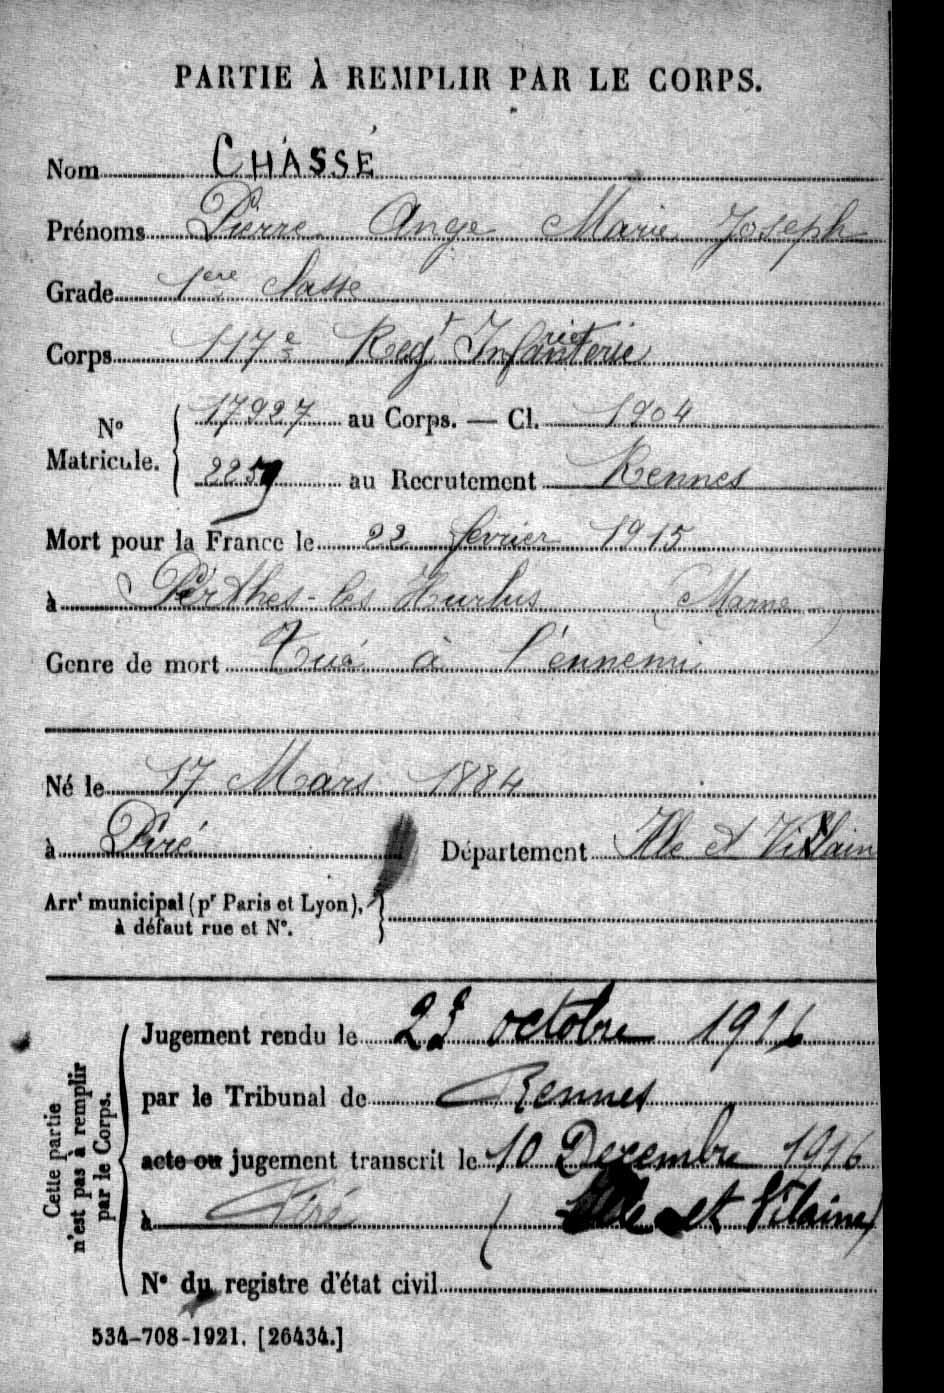 PARTIE À REMPLIR PAR LE CORPS.
Nom CHASSÉ
Prénoms Pierre Ange Marie Joseph
Grade 1ère classe
Corps 117e Regt Infanterie
No Matricule. { 17927 au Corps. — Cl. 1904
2259 au Recrutement Rennes
Mort pour la France le 22 fevrier 1915
à Perthes-les Hurlus (Marne)
Genre de mort Tué à l'ennemi
Né le 17 Mars 1884
à Piré Département Ille et Villain
Arrt municipal (pr Paris et Lyon), à défaut rue et No. }
Cette partie n'est pas à remplir par le Corps.
Jugement rendu le octobre 1916
par le Tribunal de Rennes
acte ou jugement transcrit le 10 Decembre 1916
à Piré (Ille et Vilaine)
No du registre d'état civil
534-708-1921. [26434.]